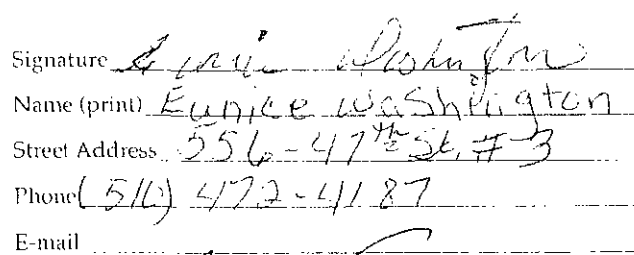 Signature Eunice Washington
Name (print) Eunice Washington
Street Address 556-47th St. #3
Phone (510) 472-4187
E-mail